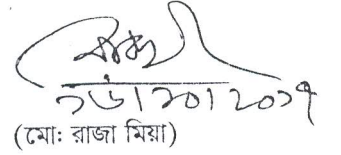 ১৬।১০।২০১৭
(মোঃ রাজা মিয়া)